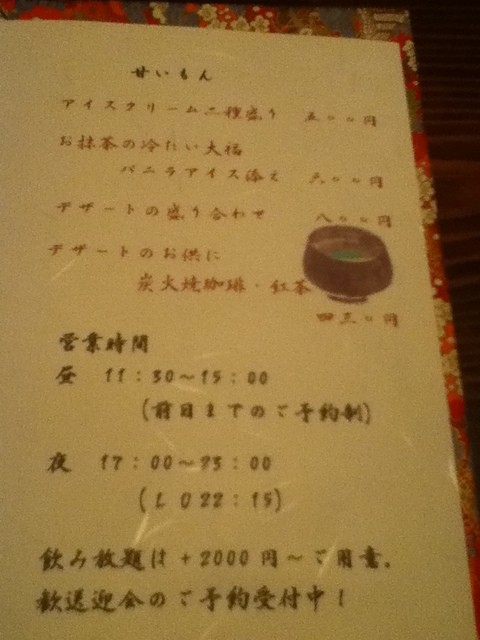 甘いもん
アイスクリーム二種盛り 五〇〇円
お抹茶の冷たい大福
バニラアイス添え 六〇〇円
デザートの盛り合わせ 八〇〇円
デザートのお供に
炭火焼珈琲・紅茶
四三〇円
営業時間
昼 11:30～15:00
(前日までのご予約制)
夜 17:00～23:00
(LO22:15)
飲み放題は+2000円～ご用意。
歓送迎会のご予約受付中!